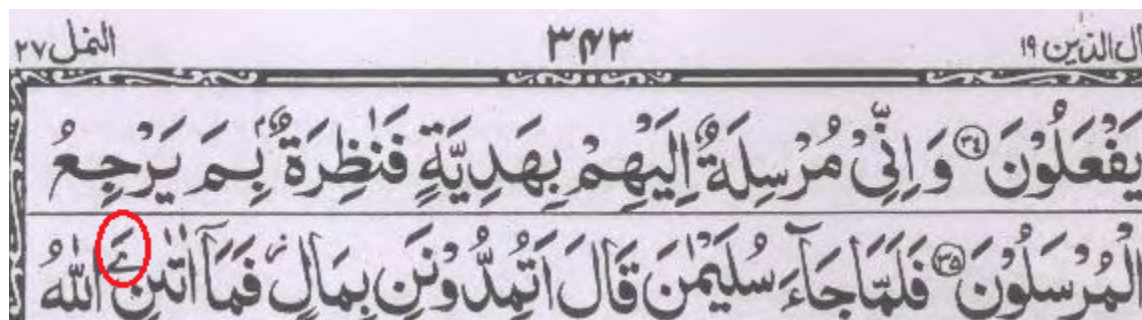 قال الذين ١٩ ٣٤٣ النمل ٢٧
يَفْعَلُوْنَ ۝٣٤ وَ اِنِّیْ مُرْسِلَةٌ اِلَیْهِمْ بِهَدِیَّةٍ فَنٰظِرَةٌۢ بِمَ یَرْجِعُ
الْمُرْسَلُوْنَ ۝٣٥ فَلَمَّا جَآءَ سُلَیْمٰنَ قَالَ اَتُمِدُّوْنَنِ بِمَالٍ ؗ فَمَاۤ اٰتٰىنِۦَ اللّٰهُ